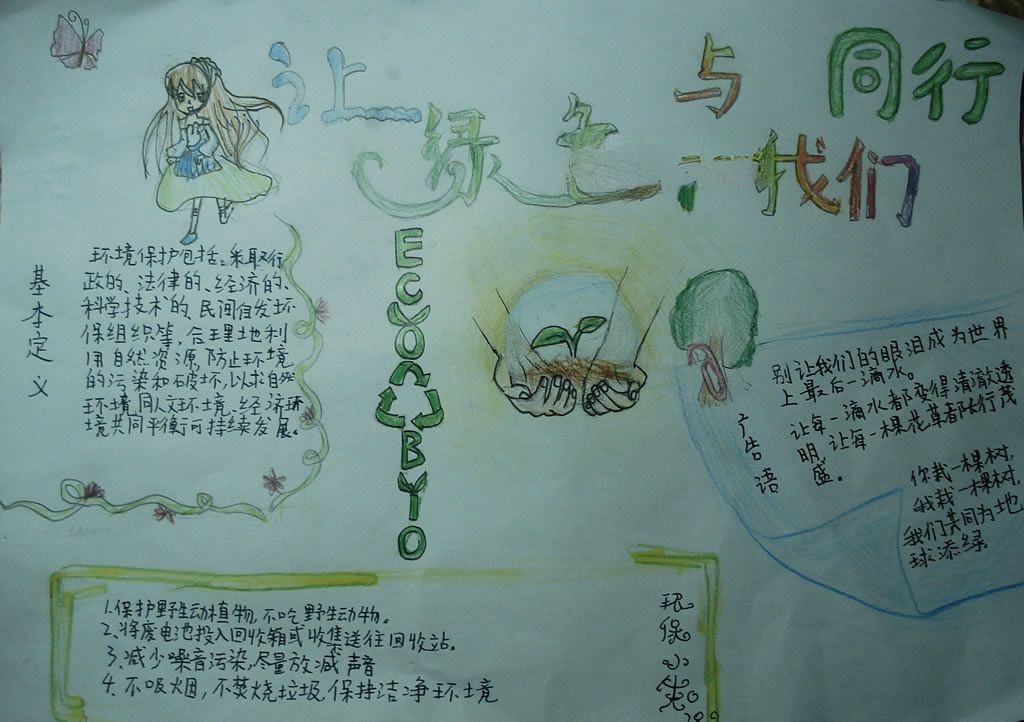 让
绿色
与
我们
同行
基本定义
环境保护包括:采取行
政的、法律的、经济的、
科学技术的、民间自发环
保组织等,合理地利
用自然资源,防止环境
的污染和破坏,以求自然
环境同人文环境、经济环
境共同平衡可持续发展。
ECO
BYIO
广告语
别让我们的眼泪成为世界
上最后一滴水。
让每一滴水都变得清澈透
明,让每一棵花草都长行茂
盛。
你栽一棵树,
我栽一棵树,
我们共同为地
球添绿
1.保护野生动植物,不吃野生动物。
2、将废电池投入回收箱或收集送往回收站。
3、减少噪音污染,尽量放减声音
4、不吸烟,不焚烧垃圾,保持洁净环境
环保小